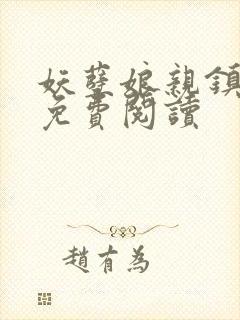 妖孽娘親鎮
免費閱讀
趙有為